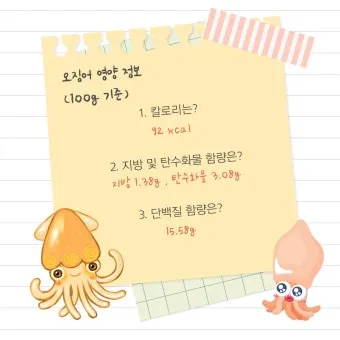 오징어 영양 정보
(100g 기준)
1. 칼로리는?
92 kcal
2. 지방 및 탄수화물 함량은?
지방 1.38g , 탄수화물 3.08g
3. 단백질 함량은?
15.58g